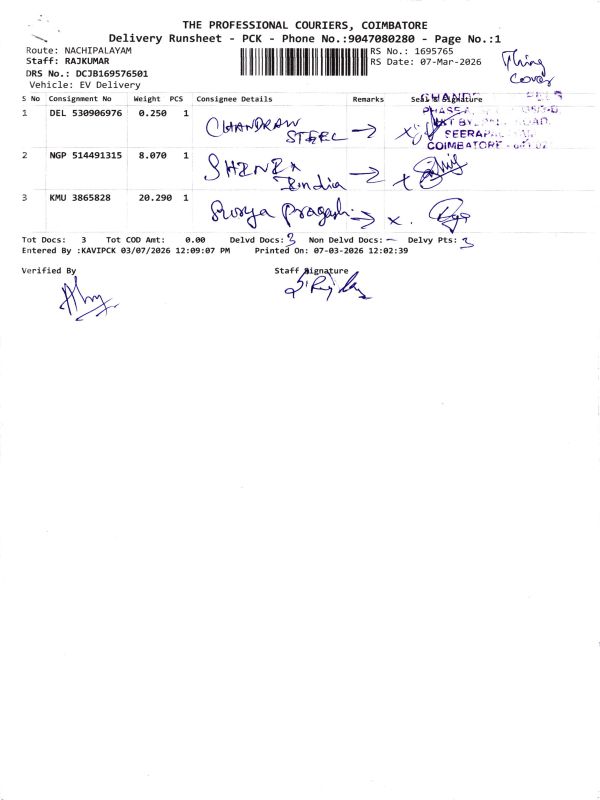 THE PROFESSIONAL COURIERS, COIMBATORE
Delivery Runsheet - PCK - Phone No.:9047080280 - Page No.:1
Route: NACHIPALAYAM
RS No.: 1695765
Staff: RAJKUMAR
RS Date: 07-Mar-2026
DRS No.: DCJB169576501
Vehicle: EV Delivery
Thing
cover
S No Consignment No Weight PCS Consignee Details Remarks Seal & Signature
1 DEL 530906976 0.250 1 CHANDRAN
STEEL
COIMBATORE
2 NGP 514491315 8.070 1
India
3 KMU 3865828 20.290 1 Surya Pragash
Tot Docs: 3 Tot COD Amt: 0.00 Delvd Docs: 3 Non Delvd Docs: - Delvy Pts: 3
Entered By :KAVIPCK 03/07/2026 12:09:07 PM Printed On: 07-03-2026 12:02:39
Verified By Staff Signature